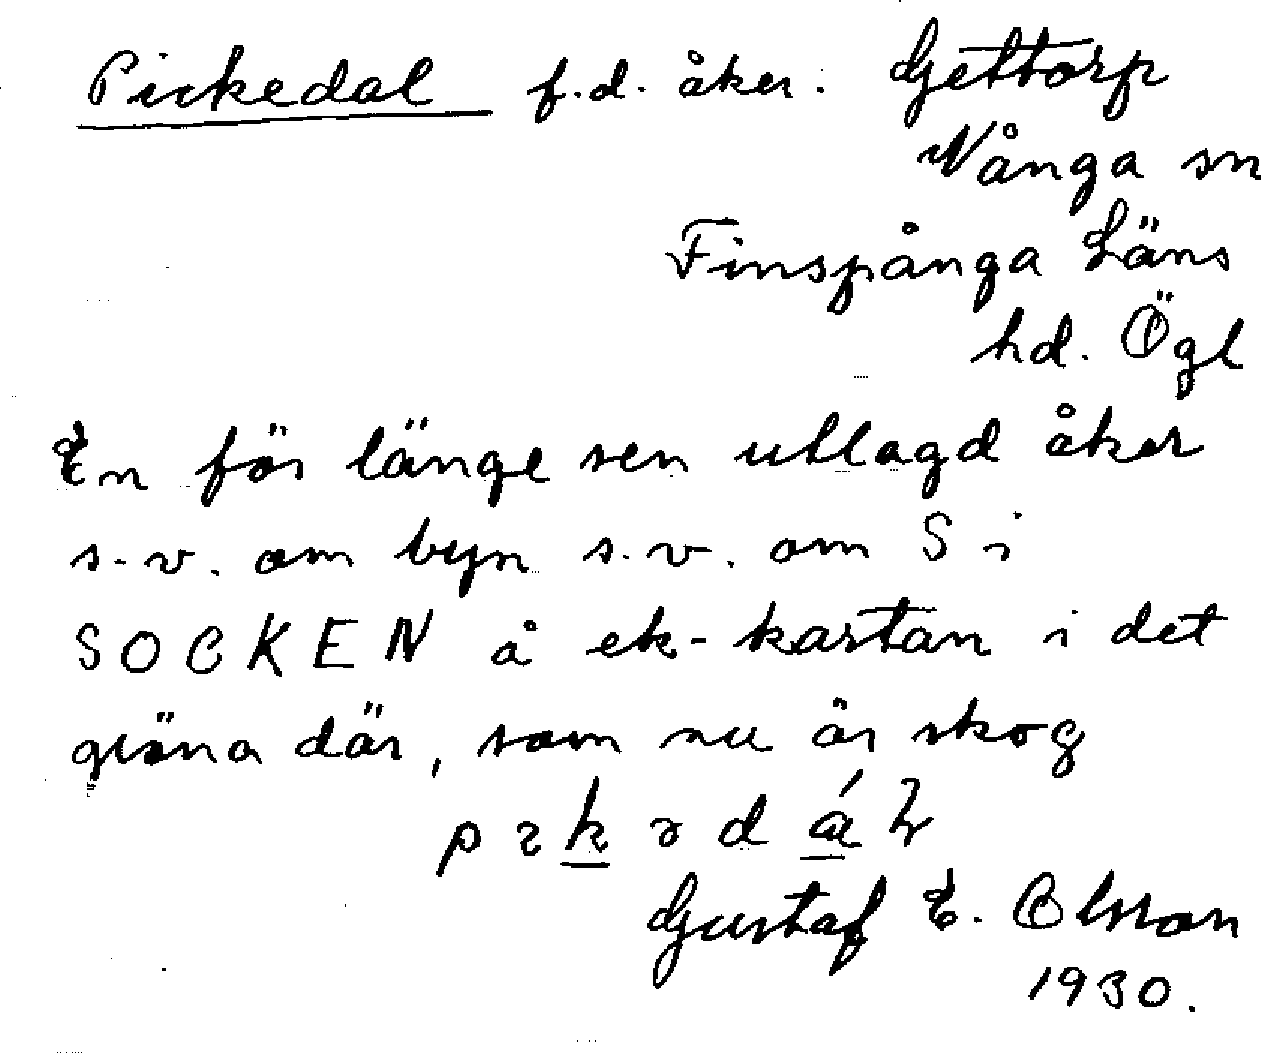 Pickedal f.d. åker. Gettorp
Vånga sn
Finspånga Läns
hd. Ögl
En för länge sen utlagd åker
s.v. om byn s.v. om S i
SOCKEN å ek-kartan i det
gröna där, som nu är skog
Gustaf E. Olsson
1930.